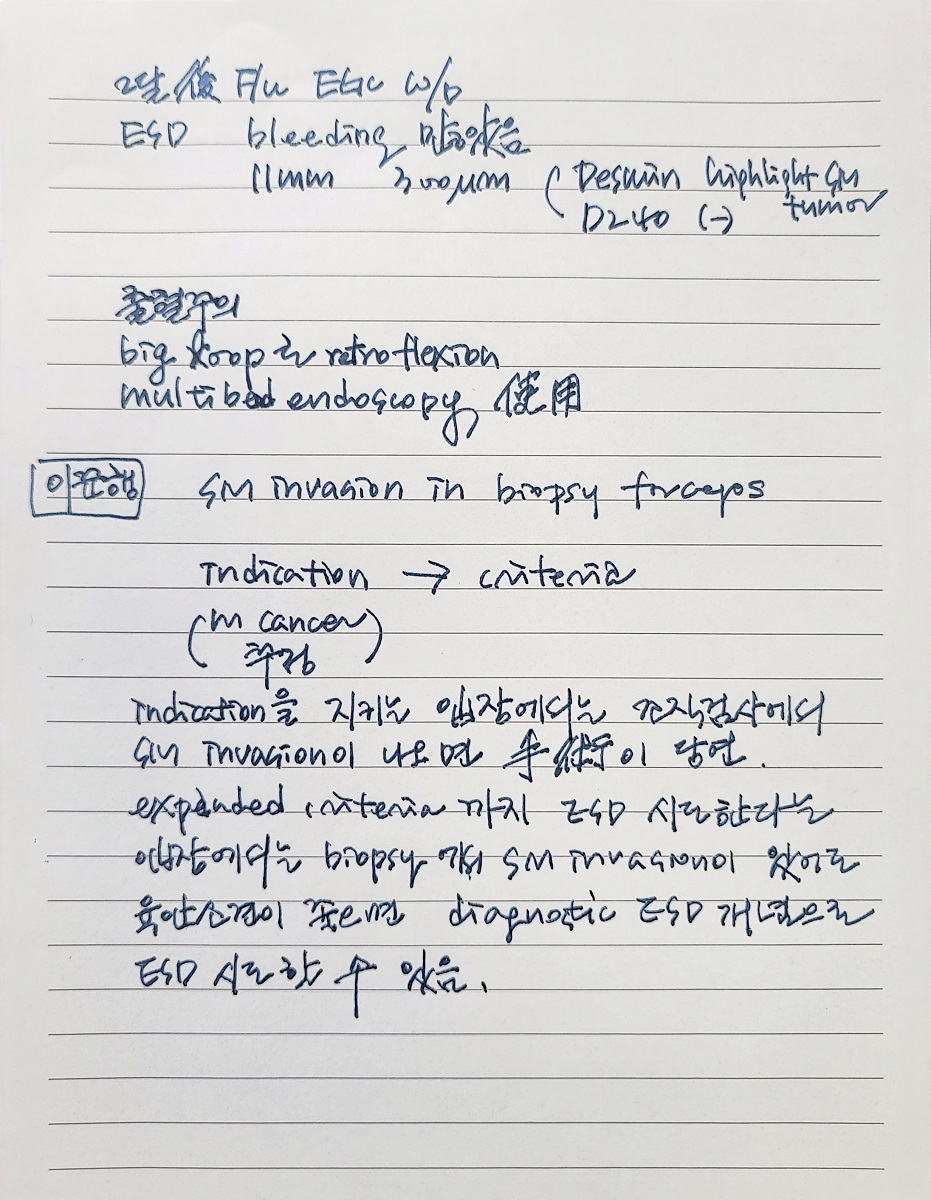 2달 後 F/u EGC w/D
ESD bleeding 많았음
11mm 300μm ( Desmin highlight SM tumor
D240 (-)
출혈주의
big loop로 retroflexion
multibed endoscopy 使用
이준행 SM invasion in biopsy forceps
indication → criteria
(m cancer
추정)
indication을 지키는 입장에서는 조직검사에서
SM invasion이 나오면 手術이 당연.
expanded criteria 까지 ESD 시도한다는
입장에서는 biopsy에서 SM invasion이 있어도
육안소견이 좋으면 diagnostic ESD 개념으로
ESD 시도할 수 있음.